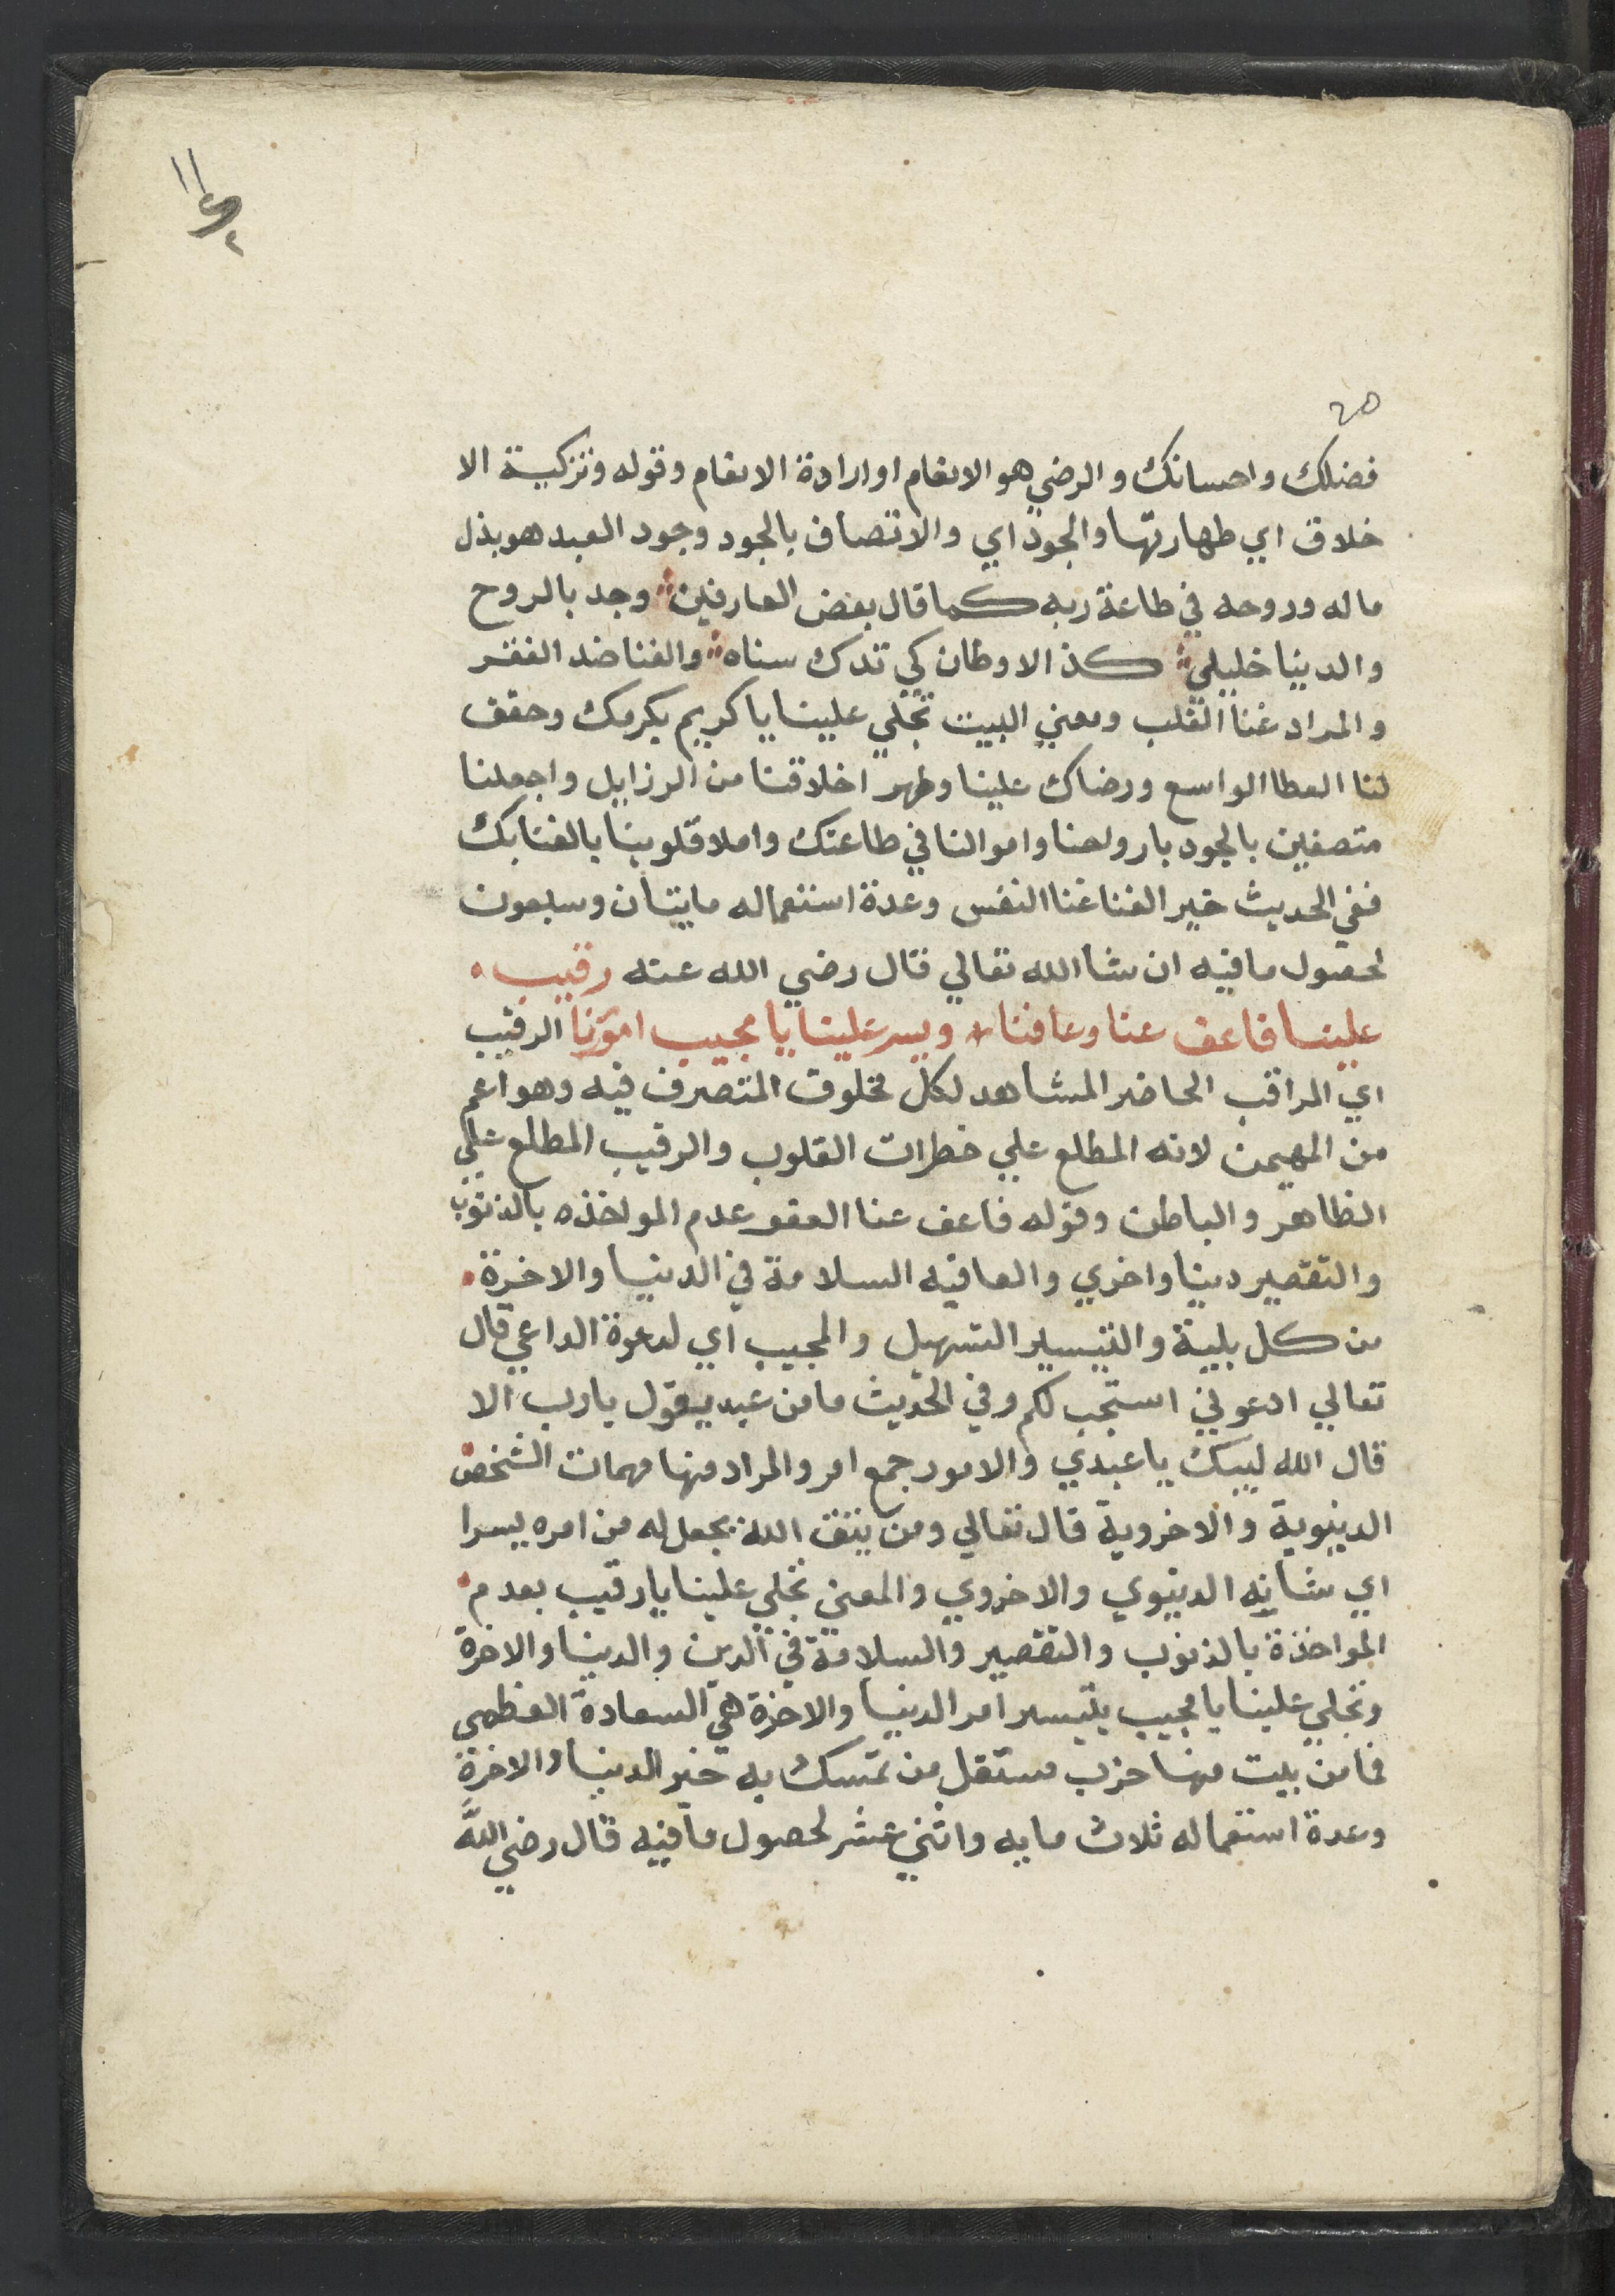 ١١
٢
٢٥
فضلك واحسانك والرضي هو الانعام او ارادة الانعام وقوله وتزكية الا
خلاق اي طهارتها والجود اي والاتصاف بالجود وجود العبد هو بذل
ماله وروحه في طاعة ربه كما قال بعض العارفين وجد بالروح
والدنيا خليلي كذ الاوطان كي تدرك سناه والغنا ضد الفقر
والمراد غنا القلب ومعني البيت تجلي علينا يا كريم بكرمك وحقق
لنا العطا الواسع ورضاك علينا وطهر اخلاقنا من الرزايل واجعلنا
متصفين بالجود بارواحنا واموالنا في طاعتك واملا قلوبنا بالغنا بك
ففي الحديث خير الغنا غنا النفس وعدة استعماله مايتان وسبعون
لحصول ما فيه ان شا الله تعالي قال رضي الله عنه رقيب
علينا فاعف عنا وعافنا ويسر علينا يا مجيب امورنا الرقيب
اي المراقب الحاضر المشاهد لكل مخلوق المتصرف فيه وهو اعم
من المهيمن لانه المطلع علي خطرات القلوب والرقيب المطلع علي
الظاهر والباطن وقوله فاعف عنا العفو عدم المواخذه بالذنوب
والتقصير دينا واخري والعافيه السلامة في الدنيا والاخرة
من كل بلية والتيسير التسهيل والمجيب اي لدعوة الداعي قال
تعالي ادعوني استجب لكم وفي الحديث ما من عبد يقول يا رب الا
قال الله لبيك يا عبدي والامور جمع امر والمراد منها مهمات الشخص
الدينوية والاخروية قال تعالي ومن يتق الله يجعل له من امره يسرا
اي شانه الدينوي والاخروي والمعني تجلي علينا يا رقيب بعدم
المواخذة بالذنوب والتقصير والسلامة في الدين والدنيا والاخرة
وتجلي علينا يا مجيب بتيسير امر الدنيا والاخرة هي السعادة العظمي
فما من بيت منها حزب مستقل من تمسك به خير الدنيا والاخرة
وعدة استعماله ثلاث مايه واثني عشر لحصول ما فيه قال رضي الله